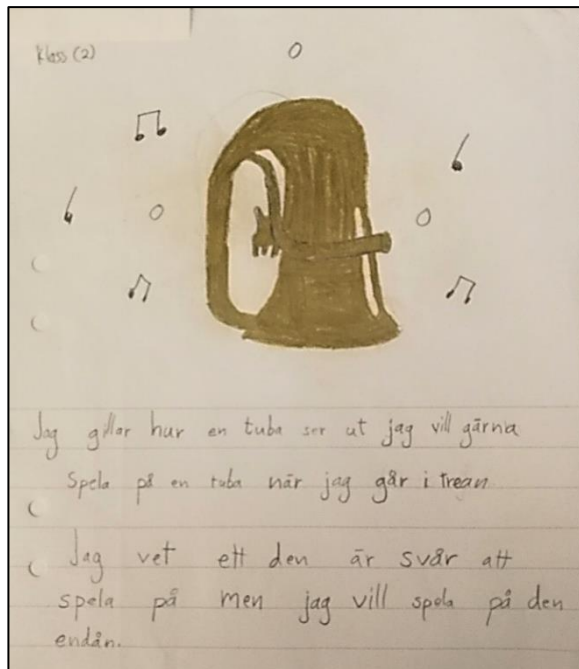 Klass (2)
Jag gillar hur en tuba ser ut jag vill gärna
Spela på en tuba när jag går i trean
Jag vet ett den är svår att
spela på men jag vill spela på den
endån.